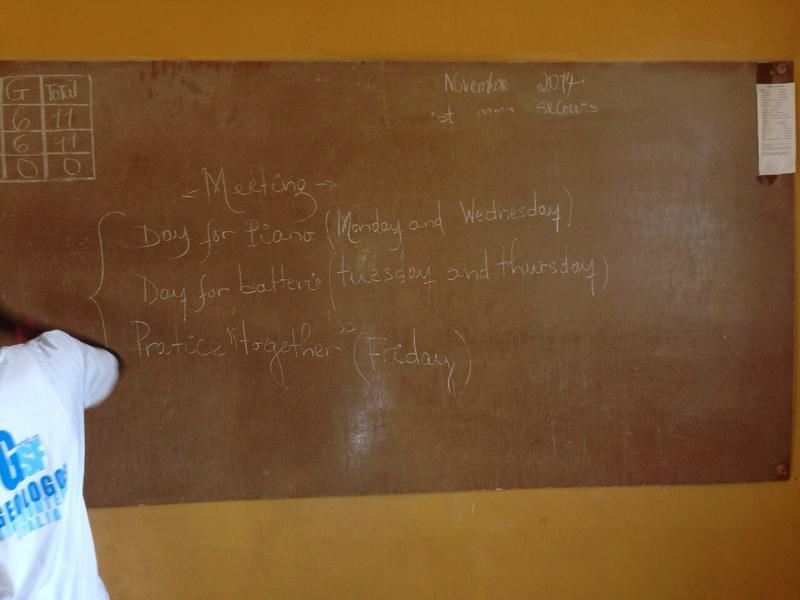 G Total
6 11
6 11
0 0
Novembre 2014
secours
- Meeting -
Day for Piano (Monday and Wednesday)
Day for batterie (tuesday and thursday)
Pratice "together" (Friday)
GSF
GEOLOGOS